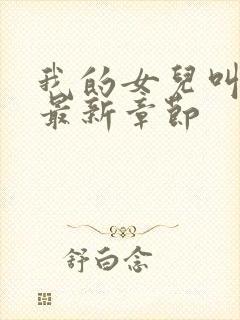 我的女兒叫
最新章節
舒白念